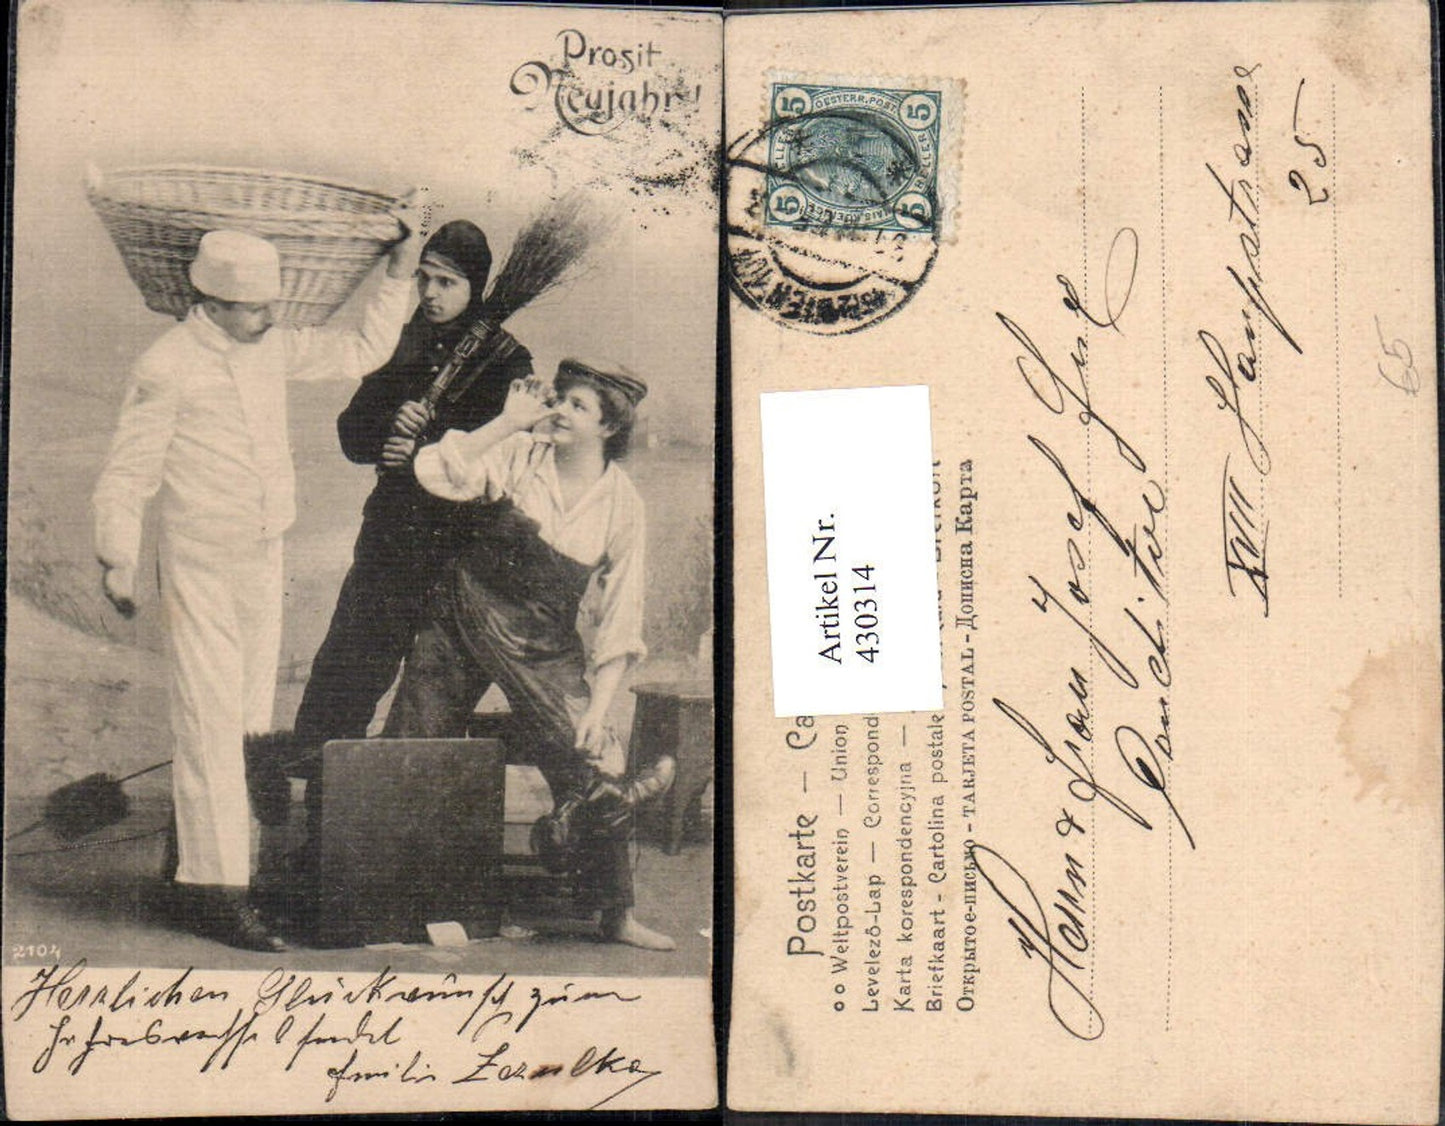 Prosit
Neujahr!
2104
Herzlichen Glückwünsch zum
Jahreswechsel sendet
Emilie Zezulka
5 5
OESTERR. POST.
5 5
WIEN
Artikel Nr.
430314
Postkarte — Ca
Weltpostverein — Union
Levelező-Lap — Correspond
Karta korespondencyjna —
Briefkaart - Cartolina postale
Открытое-письмо - TARJETA POSTAL - Дописна Карта
Herrn & Frau Josef
Conditor
XVII
25
65